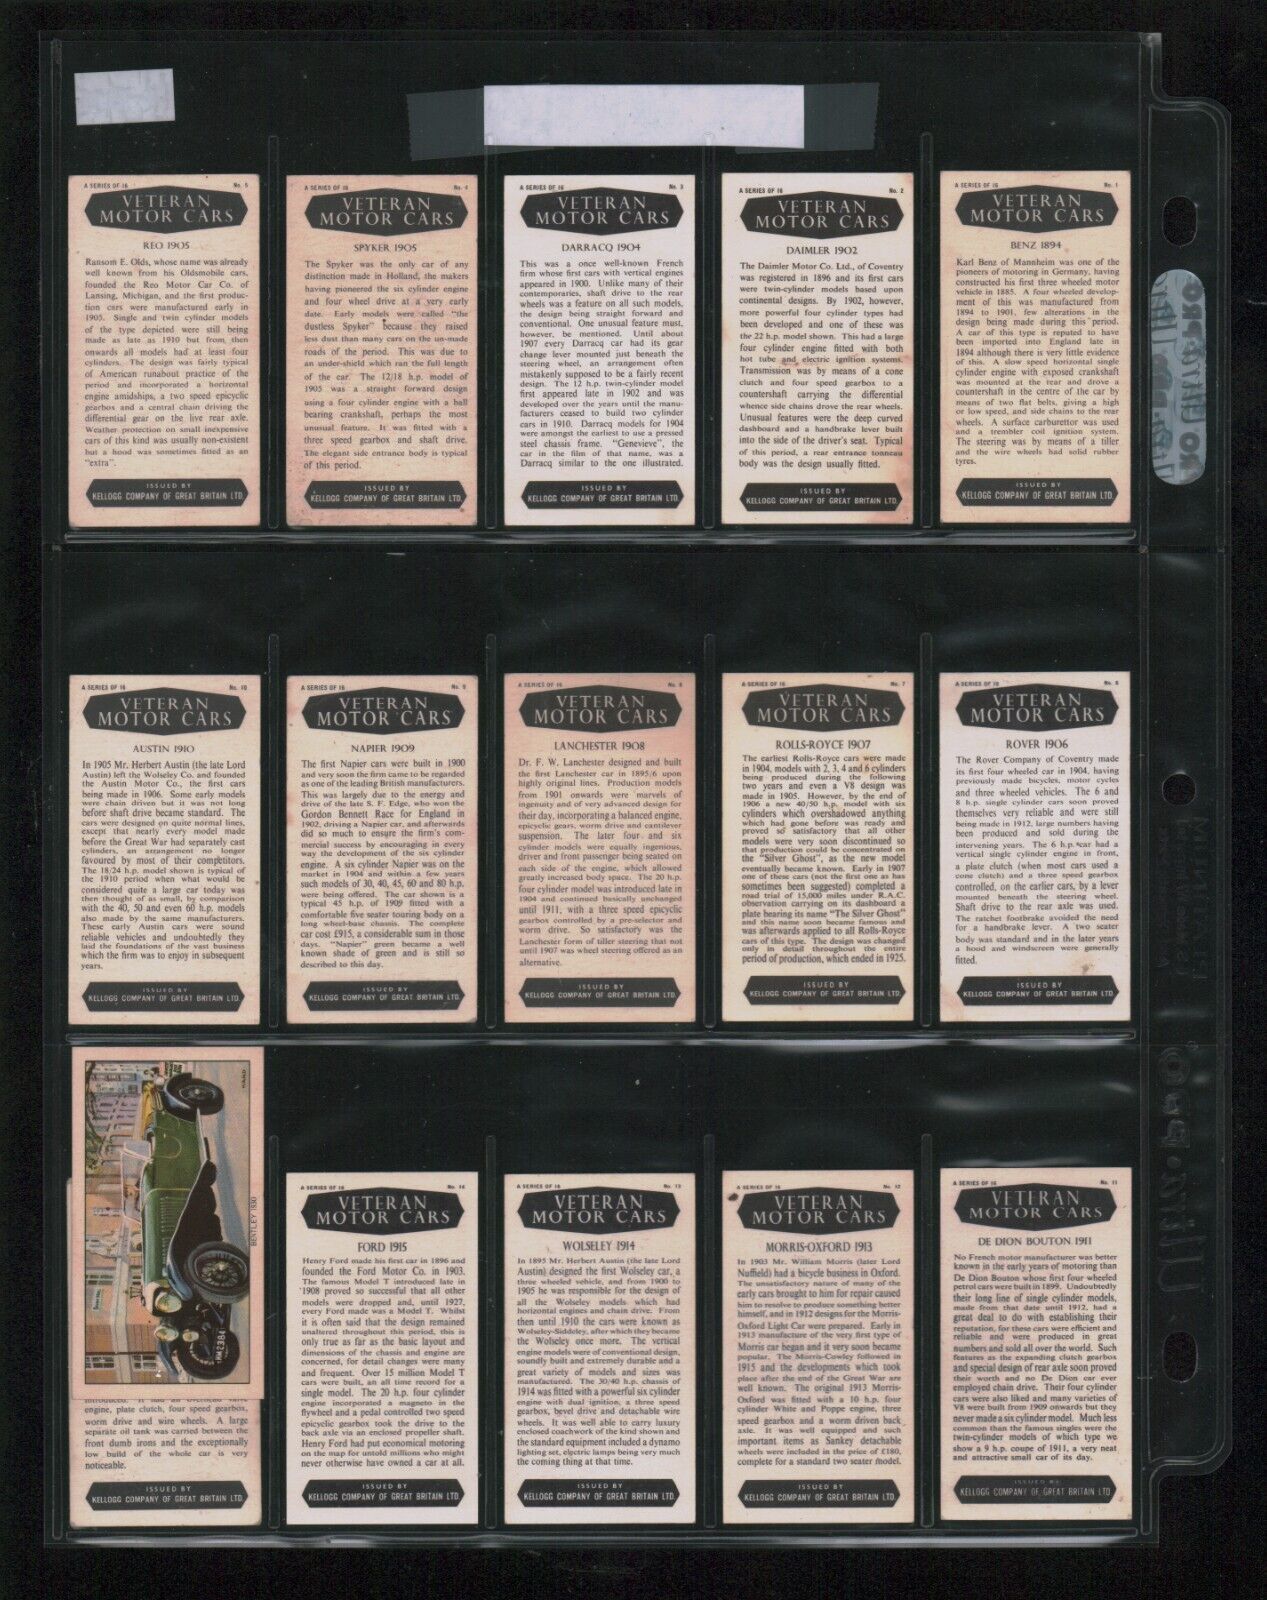 A SERIES OF 16 No. 5
VETERAN
MOTOR CARS
REO 1905
Ransom E. Olds, whose name was already
well known from his Oldsmobile cars,
founded the Reo Motor Car Co. of
Lansing, Michigan, and the first produc-
tion cars were manufactured early in
1905. Single and twin cylinder models
of the type depicted were still being
made as late as 1910 but from then
onwards all models had at least four
cylinders. The design was fairly typical
of American runabout practice of the
period and incorporated a horizontal
engine amidships, a two speed epicyclic
gearbox and a central chain driving the
differential gear on the live rear axle.
Weather protection on small inexpensive
cars of this kind was usually non-existent
but a hood was sometimes fitted as an
"extra".
ISSUED BY
KELLOGG COMPANY OF GREAT BRITAIN LTD.
A SERIES OF 16 No. 4
VETERAN
MOTOR CARS
SPYKER 1905
The Spyker was the only car of any
distinction made in Holland, the makers
having pioneered the six cylinder engine
and four wheel drive at a very early
date. Early models were called "the
dustless Spyker" because they raised
less dust than many cars on the un-made
roads of the period. This was due to
an under-shield which ran the full length
of the car. The 12/18 h.p. model of
1905 was a straight forward design
using a four cylinder engine with a ball
bearing crankshaft, perhaps the most
unusual feature. It was fitted with a
three speed gearbox and shaft drive.
The elegant side entrance body is typical
of this period.
ISSUED BY
KELLOGG COMPANY OF GREAT BRITAIN LTD.
A SERIES OF 16 No. 3
VETERAN
MOTOR CARS
DARRACQ 1904
This was a once well-known French
firm whose first cars with vertical engines
appeared in 1900. Unlike many of their
contemporaries, shaft drive to the rear
wheels was a feature on all such models,
the design being straight forward and
conventional. One unusual feature must,
however, be mentioned. Until about
1907 every Darracq car had its gear
change lever mounted just beneath the
steering wheel, an arrangement often
mistakenly supposed to be a fairly recent
design. The 12 h.p. twin-cylinder model
first appeared late in 1902 and was
developed over the years until the manu-
facturers ceased to build two cylinder
cars in 1910. Darracq models for 1904
were amongst the earliest to use a pressed
steel chassis frame. "Genevieve", the
car in the film of that name, was a
Darracq similar to the one illustrated.
ISSUED BY
KELLOGG COMPANY OF GREAT BRITAIN LTD.
A SERIES OF 16 No. 2
VETERAN
MOTOR CARS
DAIMLER 1902
The Daimler Motor Co. Ltd., of Coventry
was registered in 1896 and its first cars
were twin-cylinder models based upon
continental designs. By 1902, however,
more powerful four cylinder types had
been developed and one of these was
the 22 h.p. model shown. This had a large
four cylinder engine fitted with both
hot tube and electric ignition systems.
Transmission was by means of a cone
clutch and four speed gearbox to a
countershaft carrying the differential
whence side chains drove the rear wheels.
Unusual features were the deep curved
dashboard and a handbrake lever built
into the side of the driver's seat. Typical
of this period, a rear entrance tonneau
body was the design usually fitted.
ISSUED BY
KELLOGG COMPANY OF GREAT BRITAIN LTD.
A SERIES OF 16 No. 1
VETERAN
MOTOR CARS
BENZ 1894
Karl Benz of Mannheim was one of the
pioneers of motoring in Germany, having
constructed his first three wheeled motor
vehicle in 1885. A four wheeled develop-
ment of this was manufactured from
1894 to 1901, few alterations in the
design being made during this period.
A car of this type is reputed to have
been imported into England late in
1894 although there is very little evidence
of this. A slow speed horizontal single
cylinder engine with exposed crankshaft
was mounted at the rear and drove a
countershaft in the centre of the car by
means of two flat belts, giving a high
or low speed, and side chains to the rear
wheels. A surface carburettor was used
and a trembler coil ignition system.
The steering was by means of a tiller
and the wire wheels had solid rubber
tyres.
ISSUED BY
KELLOGG COMPANY OF GREAT BRITAIN LTD.
A SERIES OF 16 No. 10
VETERAN
MOTOR CARS
AUSTIN 1910
In 1905 Mr. Herbert Austin (the late Lord
Austin) left the Wolseley Co. and founded
the Austin Motor Co., the first cars
being made in 1906. Some early models
were chain driven but it was not long
before shaft drive became standard. The
cars were designed on quite normal lines,
except that nearly every model made
before the Great War had separately cast
cylinders, an arrangement no longer
favoured by most of their competitors.
The 18/24 h.p. model shown is typical of
the 1910 period when what would be
considered quite a large car today was
then thought of as small, by comparison
with the 40, 50 and even 60 h.p. models
also made by the same manufacturers.
These early Austin cars were sound
reliable vehicles and undoubtedly they
laid the foundations of the vast business
which the firm was to enjoy in subsequent
years.
ISSUED BY
KELLOGG COMPANY OF GREAT BRITAIN LTD.
A SERIES OF 16 No. 9
VETERAN
MOTOR CARS
NAPIER 1909
The first Napier cars were built in 1900
and very soon the firm came to be regarded
as one of the leading British manufacturers.
This was largely due to the energy and
drive of the late S. F. Edge, who won the
Gordon Bennett Race for England in
1902, driving a Napier car, and afterwards
did so much to ensure the firm's com-
mercial success by encouraging in every
way the development of the six cylinder
engine. A six cylinder Napier was on the
market in 1904 and within a few years
such models of 30, 40, 45, 60 and 80 h.p.
were being offered. The car shown is a
typical 45 h.p. of 1909 fitted with a
comfortable five seater touring body on a
long wheel-base chassis. The complete
car cost £915, a considerable sum in those
days. "Napier" green became a well
known shade of green and is still so
described to this day.
ISSUED BY
KELLOGG COMPANY OF GREAT BRITAIN LTD.
A SERIES OF 16 No. 8
VETERAN
MOTOR CARS
LANCHESTER 1908
Dr. F. W. Lanchester designed and built
the first Lanchester car in 1895/6 upon
highly original lines. Production models
from 1901 onwards were marvels of
ingenuity and of very advanced design for
their day, incorporating a balanced engine,
epicyclic gears, worm drive and cantilever
suspension. The later four and six
cylinder models were equally ingenious,
driver and front passenger being seated on
each side of the engine, which allowed
greatly increased body space. The 20 h.p.
four cylinder model was introduced late in
1904 and continued basically unchanged
until 1911, with a three speed epicyclic
gearbox controlled by a pre-selector and
worm drive. So satisfactory was the
Lanchester form of tiller steering that not
until 1907 was wheel steering offered as an
alternative.
ISSUED BY
KELLOGG COMPANY OF GREAT BRITAIN LTD.
A SERIES OF 16 No. 7
VETERAN
MOTOR CARS
ROLLS-ROYCE 1907
The earliest Rolls-Royce cars were made
in 1904, models with 2, 3, 4 and 6 cylinders
being produced during the following
two years and even a V8 design was
made in 1905. However, by the end of
1906 a new 40/50 h.p. model with six
cylinders which overshadowed anything
which had gone before was ready and
proved so satisfactory that all other
models were very soon discontinued so
that production could be concentrated on
the "Silver Ghost", as the new model
eventually became known. Early in 1907
one of these cars (not the first one as has
sometimes been suggested) completed a
road trial of 15,000 miles under R.A.C.
observation carrying on its dashboard a
plate bearing its name "The Silver Ghost"
and this name soon became famous and
was afterwards applied to all Rolls-Royce
cars of this type. The design was changed
only in detail throughout the entire
period of production, which ended in 1925.
ISSUED BY
KELLOGG COMPANY OF GREAT BRITAIN LTD.
A SERIES OF 16 No. 6
VETERAN
MOTOR CARS
ROVER 1906
The Rover Company of Coventry made
its first four wheeled car in 1904, having
previously made bicycles, motor cycles
and three wheeled vehicles. The 6 and
8 h.p. single cylinder cars soon proved
themselves very reliable and were still
being made in 1912, large numbers having
been produced and sold during the
intervening years. The 6 h.p. car had a
vertical single cylinder engine in front,
a plate clutch (when most cars used a
cone clutch) and a three speed gearbox
controlled, on the earlier cars, by a lever
mounted beneath the steering wheel.
Shaft drive to the rear axle was used.
The ratchet footbrake avoided the need
for a handbrake lever. A two seater
body was standard and in the later years
a hood and windscreen were generally
fitted.
ISSUED BY
KELLOGG COMPANY OF GREAT BRITAIN LTD.
BENTLEY 1930
engine, plate clutch, four speed gearbox,
worm drive and wire wheels. A large
separate oil tank was carried between the
front dumb irons and the exceptionally
low build of the whole car is very
noticeable.
ISSUED BY
KELLOGG COMPANY OF GREAT BRITAIN LTD.
A SERIES OF 16 No. 14
VETERAN
MOTOR CARS
FORD 1915
Henry Ford made his first car in 1896 and
founded the Ford Motor Co. in 1903.
The famous Model T introduced late in
1908 proved so successful that all other
models were dropped and, until 1927,
every Ford made was a Model T. Whilst
it is often said that the design remained
unaltered throughout this period, this is
only true as far as the basic layout and
dimensions of the chassis and engine are
concerned, for detail changes were many
and frequent. Over 15 million Model T
cars were built, an all time record for a
single model. The 20 h.p. four cylinder
engine incorporated a magneto in the
flywheel and a pedal controlled two speed
epicyclic gearbox took the drive to the
back axle via an enclosed propeller shaft.
Henry Ford had put economical motoring
on the map for untold millions who might
never otherwise have owned a car at all.
ISSUED BY
KELLOGG COMPANY OF GREAT BRITAIN LTD.
A SERIES OF 16 No. 13
VETERAN
MOTOR CARS
WOLSELEY 1914
In 1895 Mr. Herbert Austin (the late Lord
Austin) designed the first Wolseley car, a
three wheeled vehicle, and from 1900 to
1905 he was responsible for the design of
all the Wolseley models which had
horizontal engines and chain drive. From
then until 1910 the cars were known as
Wolseley-Siddeley, after which they became
the Wolseley once more. The vertical
engine models were of conventional design,
soundly built and extremely durable and a
great variety of models and sizes was
manufactured. The 30/40 h.p. chassis of
1914 was fitted with a powerful six cylinder
engine with dual ignition, a three speed
gearbox, bevel drive and detachable wire
wheels. It was well able to carry luxury
enclosed coachwork of the kind shown and
the standard equipment included a dynamo
lighting set, electric lamps being very much
the coming thing at that time.
ISSUED BY
KELLOGG COMPANY OF GREAT BRITAIN LTD.
A SERIES OF 16 No. 12
VETERAN
MOTOR CARS
MORRIS-OXFORD 1913
In 1903 Mr. William Morris (later Lord
Nuffield) had a bicycle business in Oxford.
The unsatisfactory nature of many of the
early cars brought to him for repair caused
him to resolve to produce something better
himself, and in 1912 designs for the Morris-
Oxford Light Car were prepared. Early in
1913 manufacture of the very first type of
Morris car began and it very soon became
popular. The Morris-Cowley followed in
1915 and the developments which took
place after the end of the Great War are
well known. The original 1913 Morris-
Oxford was fitted with a 10 h.p. four
cylinder White and Poppe engine, three
speed gearbox and a worm driven back
axle. It was well equipped and such
important items as Sankey detachable
wheels were included in the price of £180,
complete for a standard two seater model.
ISSUED BY
KELLOGG COMPANY OF GREAT BRITAIN LTD.
A SERIES OF 16 No. 11
VETERAN
MOTOR CARS
DE DION BOUTON 1911
No French motor manufacturer was better
known in the early years of motoring than
De Dion Bouton whose first four wheeled
petrol cars were built in 1899. Undoubtedly
their long line of single cylinder models,
made from that date until 1912, had a
great deal to do with establishing their
reputation, for these cars were efficient and
reliable and were produced in great
numbers and sold all over the world. Such
features as the expanding clutch gearbox
and special design of rear axle soon proved
their worth and no De Dion car ever
employed chain drive. Their four cylinder
cars were also liked and many varieties of
V8 were built from 1909 onwards but they
never made a six cylinder model. Much less
common than the famous singles were the
twin-cylinder models of which type we
show a 9 h.p. coupe of 1911, a very neat
and attractive small car of its day.
ISSUED BY
KELLOGG COMPANY OF GREAT BRITAIN LTD.